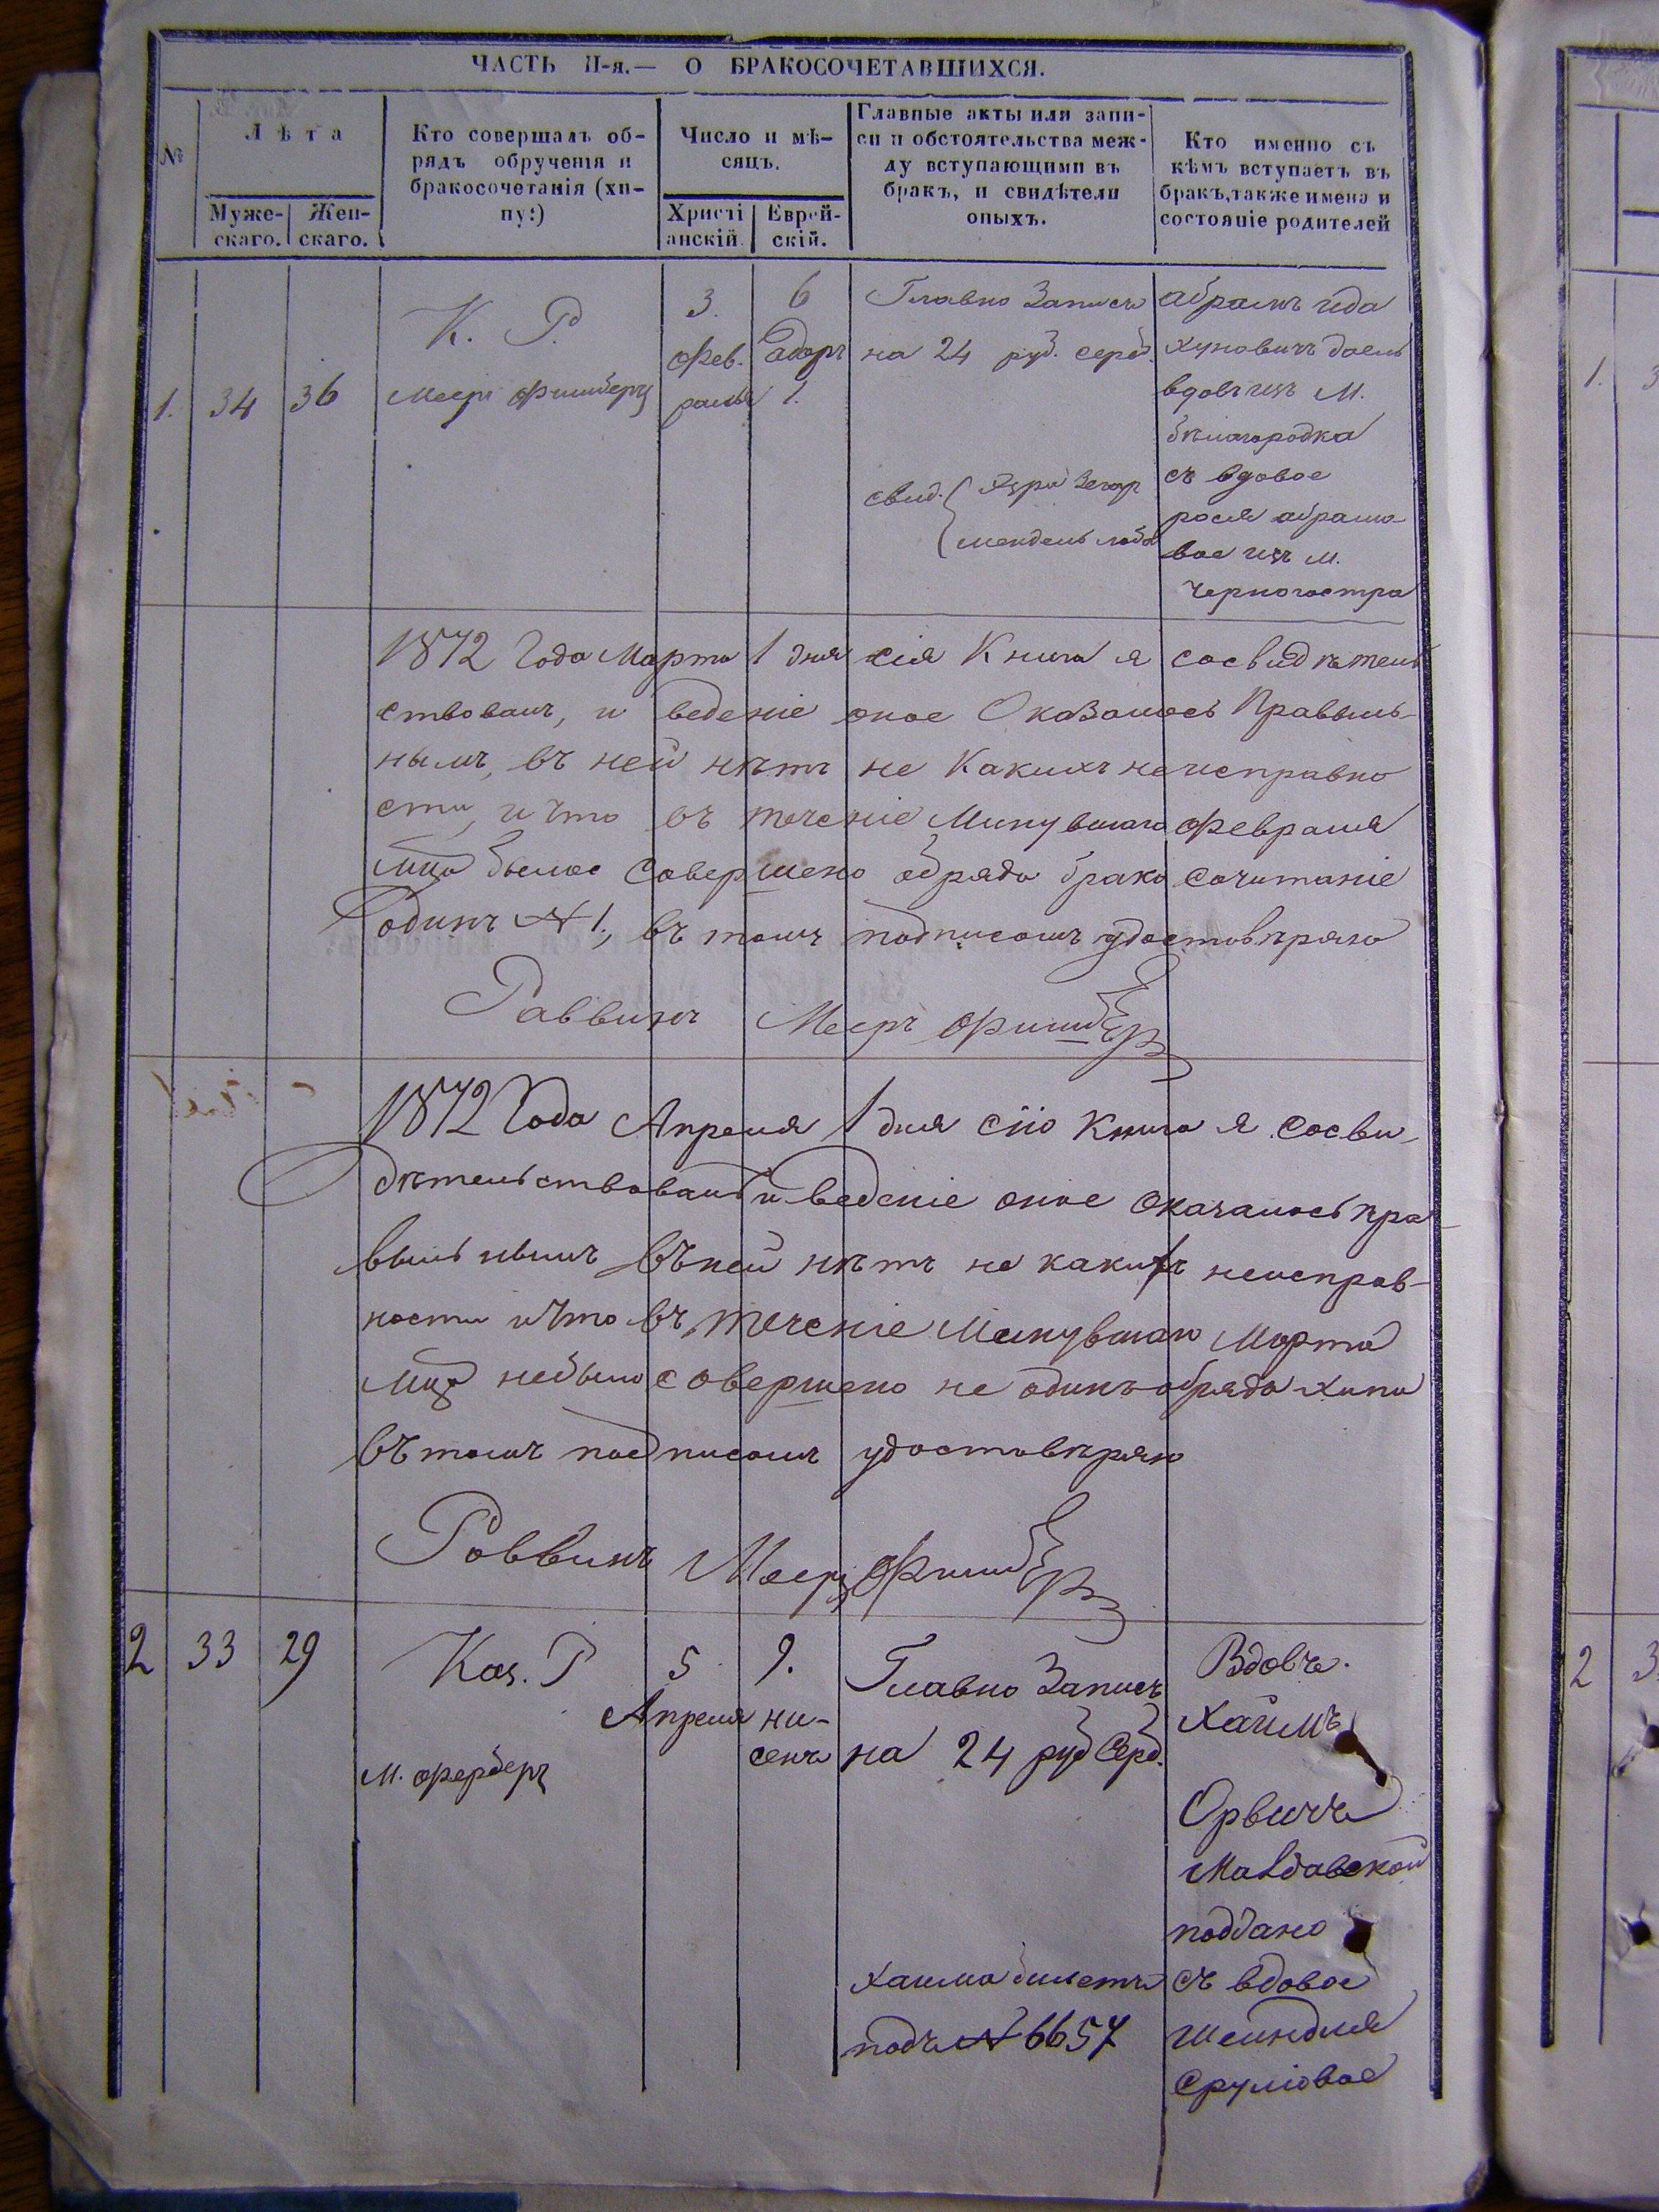 ЧАСТЬ II-я.— О БРАКОСОЧЕТАВШИХСЯ.
№
Лѣта
Муже-
скаго.
Жен-
скаго.
Кто совершалъ об-
рядъ обрученія и
бракосочетанія (хи-
пу:)
Число и мѣ-
сяцъ.
Христі
анскій.
Еврей-
скій.
Главные акты или запи-
си и обстоятельства меж-
ду вступающими въ
бракъ, и свидѣтели
оныхъ.
Кто именно съ
кѣмъ вступаетъ въ
бракъ, также имена и
состояніе родителей
1.
34
36
К. Р.
Меер
3.
Фев.
раля
6
адаръ
1.
Главно Запись
на 24 руб. сереб.
свид.
мендель
абрамъ
вдовъ изъ М.
бѣлагородка
съ вдовое
абрамо-
вое изъ м.
Черногостра
1872 Года Марта 1 дня сія Книга я сосвидѣтель
ствовалъ, и ведение оное Оказалось Правыль-
нымъ, въ ней нѣтъ не Какихъ неисправно
сти, и что въ теченіе Минувшаго Февраля
мца было Совершено обряда брако сочитаніе
одинъ №1., въ томъ подписомъ удостовѣряю
Раввинъ Мееръ
1872 Года Апреля 1 дня сію Книга я сосви-
дѣтельствовалъ и ведение оное оказалось пра-
выльнымъ въ ней нѣтъ не какихъ неисправ-
ности и что въ теченіе Минувшаго Марта
мца небыло совершено не одинъ обряда хипи
въ томъ подписомъ удостовѣряю
Раввинъ Мееръ
2
33
29
Каз. Р
М.
5
Апреля
9.
ни-
сенъ
Главно Запись
на 24 руб Сереб.
Хаима билетъ
подъ №6657
Вдовъ.
Хаимъ
Малдавской
поддано
съ вдовое
Шейндля
Сруліовое
1.
3
2
3